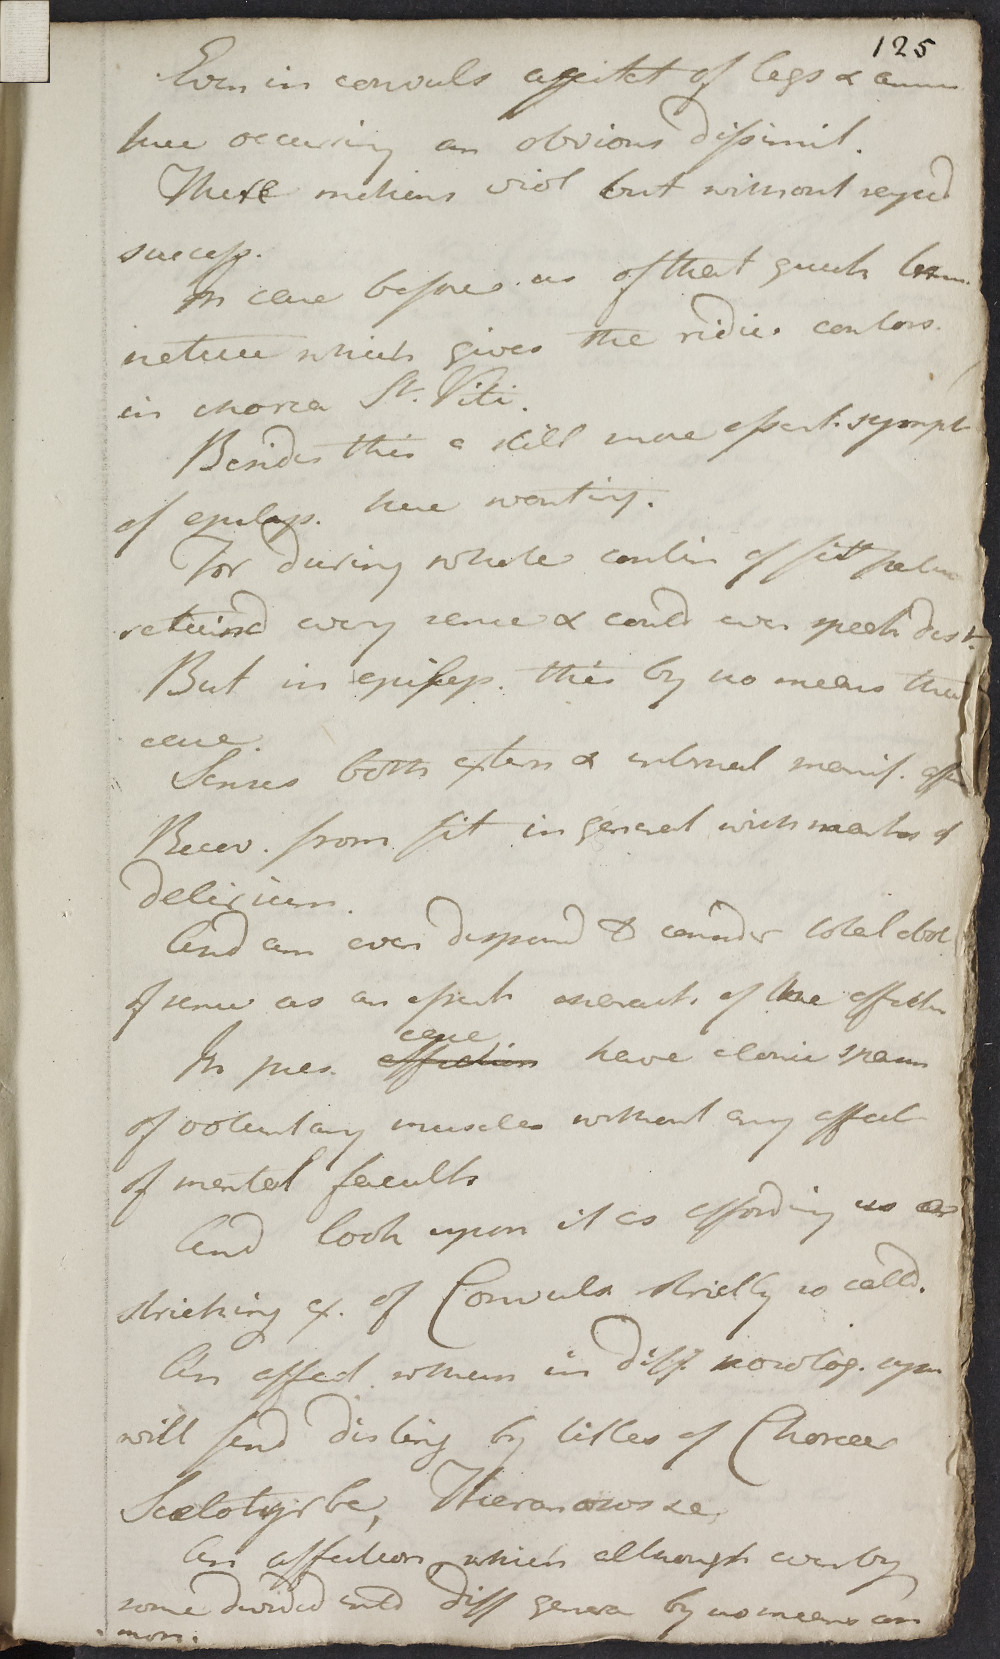 125
Even in convuls agitat of legs & arms
here occurring an obvious dissimil.
These motions viol but without regul
success.
In case before us of that
nature which gives the ridic. contors.
in chorea St. Viti.
Besides this a still more essent. sympt
of epileps. here wanting.
For during whole contin of fit patn
retained every sense & could even speak dist.
But in epileps. this by no means the
case.
Senses both extern & internal manif. aff
Recov. from fit in general with marks of
delirium.
And am even disposed to consider total abol
of sense as an essent charact. of the affectn
In pres. case affection have clonic spasm
of voluntary muscles without any affect
of mental facults
And look upon it as affording us an
striking ex. of Convuls strictly so calld.
An affect. whch in diff nosolog. upn
will find disting by titles of Chorea
Scelotyrbe, Hieranosos &c,
An affection which although even by
some divided into diff genera by no means un
mon.